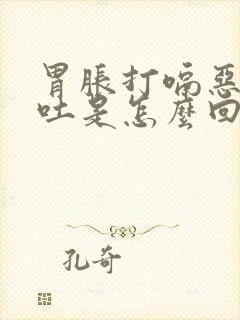 胃脹打嗝惡
吐是怎麼回
孔奇